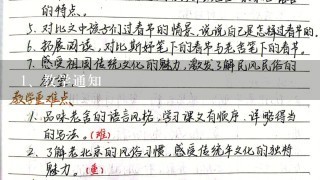 的特点。
5. 对比文中孩子们过春节的情景,说说自己是怎样过春节的。
6. 拓展阅读,对比斯妤笔下的春节与老舍笔下的春节。
7. 感受祖国传统文化的魅力,激发了解民风民俗的
1、教学通知
教学重难点
1. 品味老舍的语言风格,学习课文有顺序、详略得当
的写法。(难)
2. 了解老北京的风俗习惯,感受传统年文化的独特
魅力。(重)